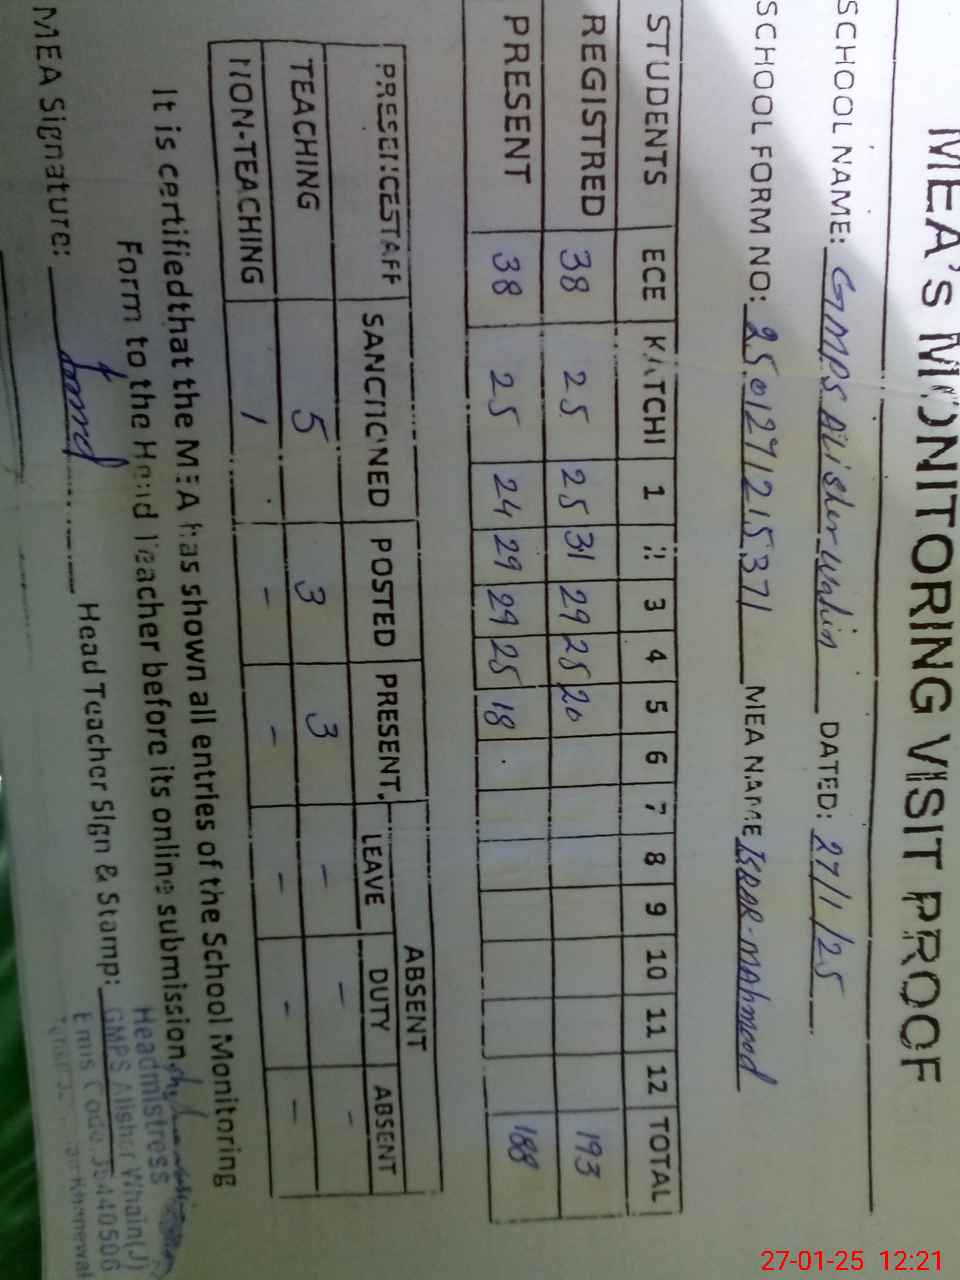 MEA'S MONITORING VISIT PROOF
SCHOOL NAME: GMPS Alisher Wahin DATED: 27/1/25
SCHOOL FORM NO: 25.01271215371 MEA NAME ISRAR-MAhmood
STUDENTS ECE KATCHI 1 2 3 4 5 6 7 8 9 10 11 12 TOTAL
REGISTRED 38 25 25 31 29 25 20 193
PRESENT 38 25 24 29 29 25 18 188
PRESENCE STAFF SANCTIONED POSTED PRESENT ABSENT
LEAVE DUTY ABSENT
TEACHING 5 3 3 - - -
NON-TEACHING 1 - - - - -
It is certified that the MEA has shown all entries of the School Monitoring
Form to the Head Teacher before its online submission
MEA Signature: Head Teacher Sign & Stamp:
Headmistress
GMPS Alisher Whain(J)
Emis Code 36440506
Khanewal
27-01-25 12:21